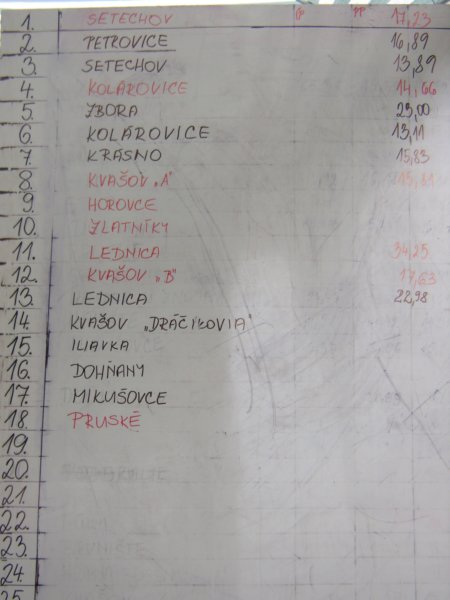 1. SETECHOV 17,23
2. PETROVICE 16,89
3. SETECHOV 13,89
4. KOLÁROVICE 14,66
5. ZBORA 23,00
6. KOLÁROVICE 13,11
7. KRÁSNO 15,83
8. KVAŠOV "A"
9. HOROVCE
10. ZLATNÍKY
11. LEDNICA 34,25
12. KVAŠOV "B" 17,63
13. LEDNICA 22,98
14. KVAŠOV "DRÁČIKOVIA"
15. ILIAVKA
16. DOHŇANY
17. MIKUŠOVCE
18. PRUSKÉ
19.
20.
21.
22.
23.
24.
25.